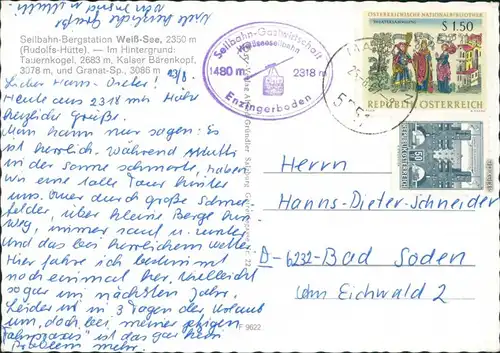 Viele herzliche Grüße
Seilbahn-Bergstation Weiß-See, 2350 m
(Rudolfs-Hütte). — Im Hintergrund:
Tauernkogel, 2683 m, Kalser Bärenkopf,
3078 m, und Granat-Sp., 3086 m
Lieber Hans-Dieter!
Heute aus 2318 mtr. Höhe
herzliche Grüße.
Man kann nur sagen: Es
ist herrlich. Während Mutti
in der Sonne schmorte, haben
wir eine tolle Tour hinter
uns. Quer durch große Schnee-
felder, über kleine Berge hin-
weg, immer rauf u. runter
und das bei herrlichem Wetter.
Hier fahre ich bestimmt
noch einmal her. Vielleicht
sogar im nächsten Jahr.
Leider ist in 3 Tagen der Urlaub
um, doch bei meiner
"Fahrpraxis" ist das gar kein
Problem mehr.
Seilbahn-Gastwirtschaft
Weißseeseilbahn
1480 m 2318 m
Enzingerboden
ÖSTERREICHISCHE NATIONALBIBLIOTHEK
S 1.50
REPUBLIK ÖSTERREICH
REPUBLIK ÖSTERREICH
50
F 9622
Herrn
Hanns-Dieter-Schneider
D-6232-Bad Soden
Am Eichwald 2